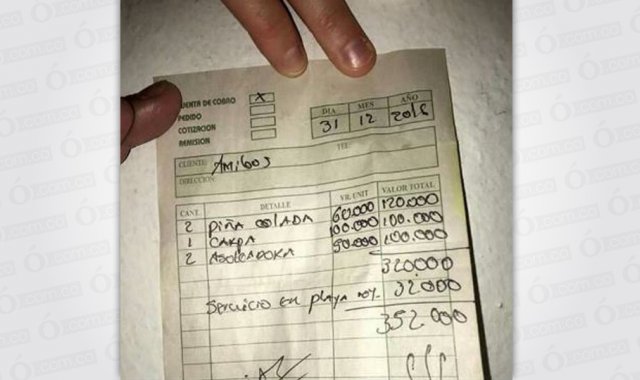 CUENTA DE COBRO X
PEDIDO
COTIZACION
REMISION
DIA MES AÑO
31 12 2016
CLIENTE: AMIGOS TEL:
DIRECCION:
CANT. DETALLE VR. UNIT VALOR TOTAL
2 PIÑA COLADA 60.000 120.000
1 CARPA 100.000 100.000
2 ASOLEADORA 50.000 100.000
320.000
Servicio en playa 10% 32.000
352000